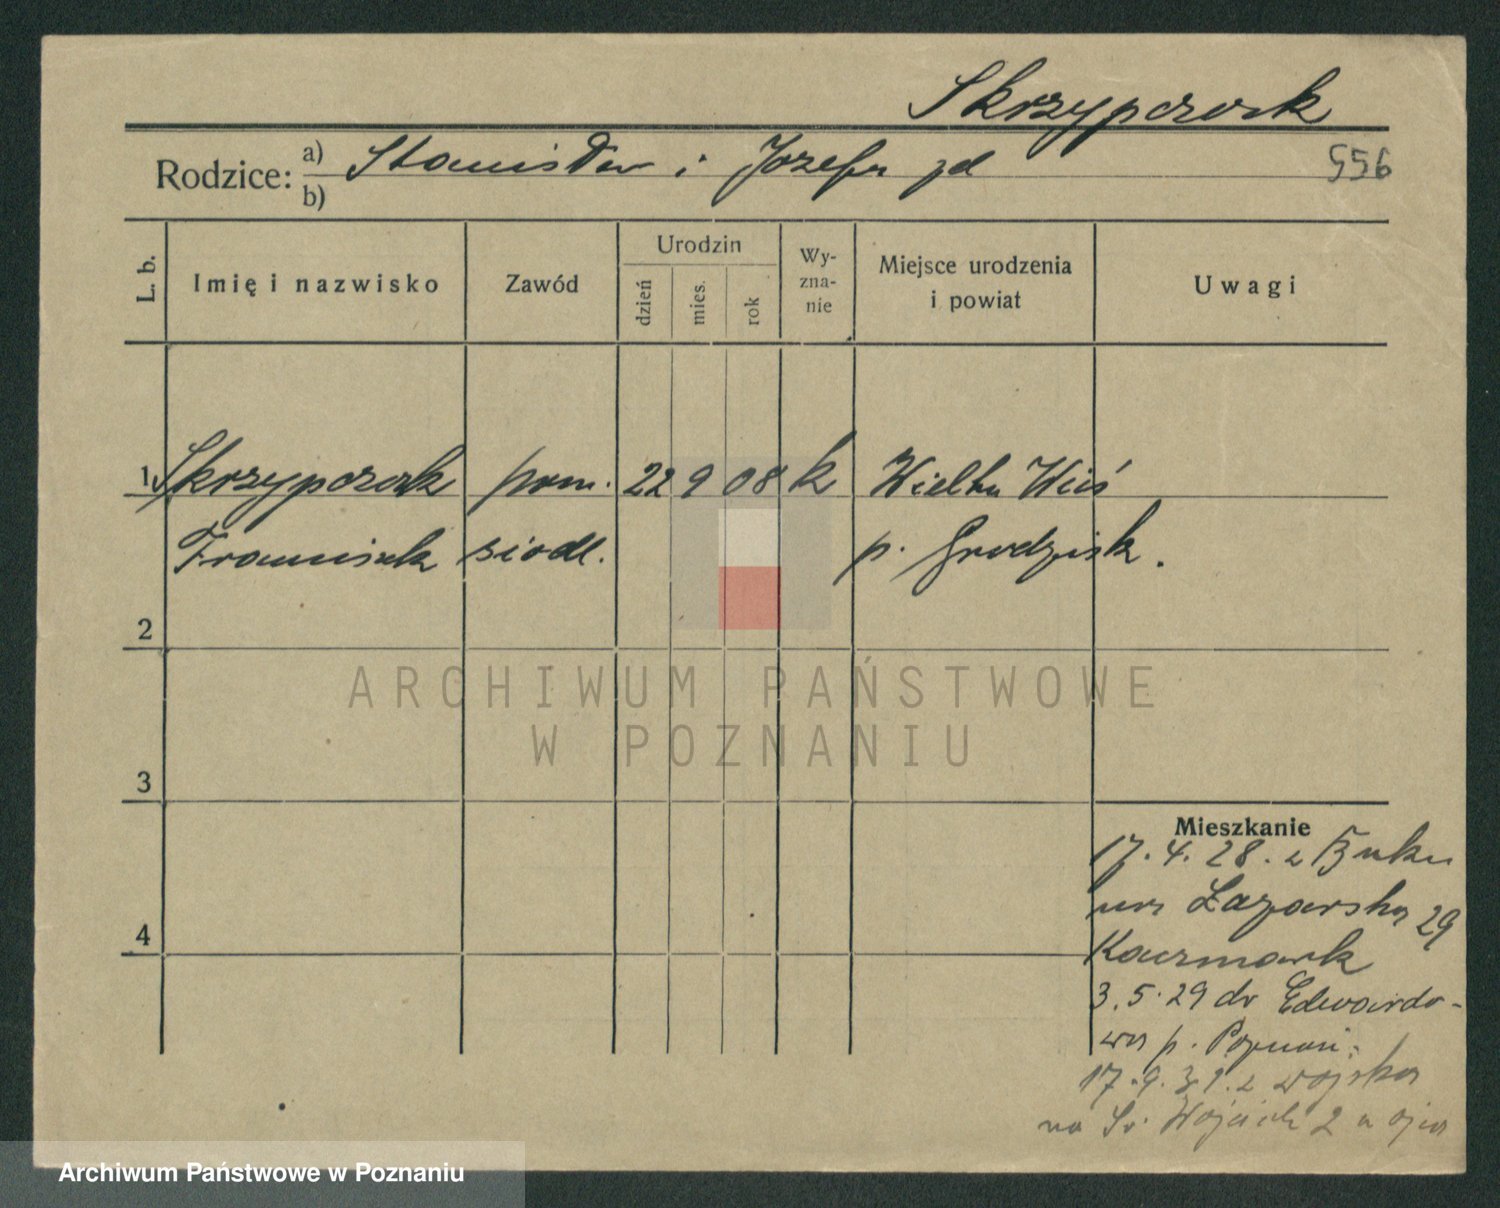 Skrzypczak
Rodzice: a) Stanisław i Józefa zd
b)
556
L. b.
Imię i nazwisko
Zawód
Urodzin
dzień
mies.
rok
Wy-
zna-
nie
Miejsce urodzenia
i powiat
Uwagi
1 Skrzypczak pom. 22 9 08 k Wielka Wieś
Franciszek siodl. p. Grodzisk.
2
3
4
Mieszkanie
17. 4. 28. z Buku
na Łazarska 29
Kaczmarek
3. 5. 29 do Edwardo-
wa p. Poznań.
17. 9. 31. z wojska
na Św. Wojciech 2 u ojca
ARCHIWUM PAŃSTWOWE
W POZNANIU
Archiwum Państwowe w Poznaniu